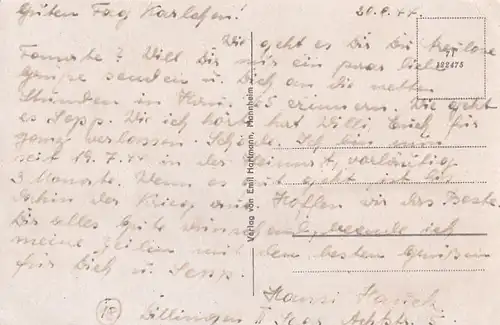 Guten Tag Karlchen!
20.9.44.
Wie geht es Dir Du treulose
Tomate? Will Dir nur ein paar liebe
Grüße senden u. Dich an die netten
Stunden in Hau. 65 erinnern. Wie geht
es Sepp. Wie ich hörte hat Willi Euch für
ganz verlassen. Schade. Ich bin nun
seit 19.7.44 in der Heimat, vorläufig
3 Monate. Wenn es gut geht ist bis
dahin der Krieg aus. Hoffen wir das Beste.
Dir alles Gute wünschend, beende ich
meine Zeilen mit den besten Grüßen
für Dich u. Sepp.
Hansi
Dillingen
T1
122475
Verlag von Emil Hartmann, Mannheim